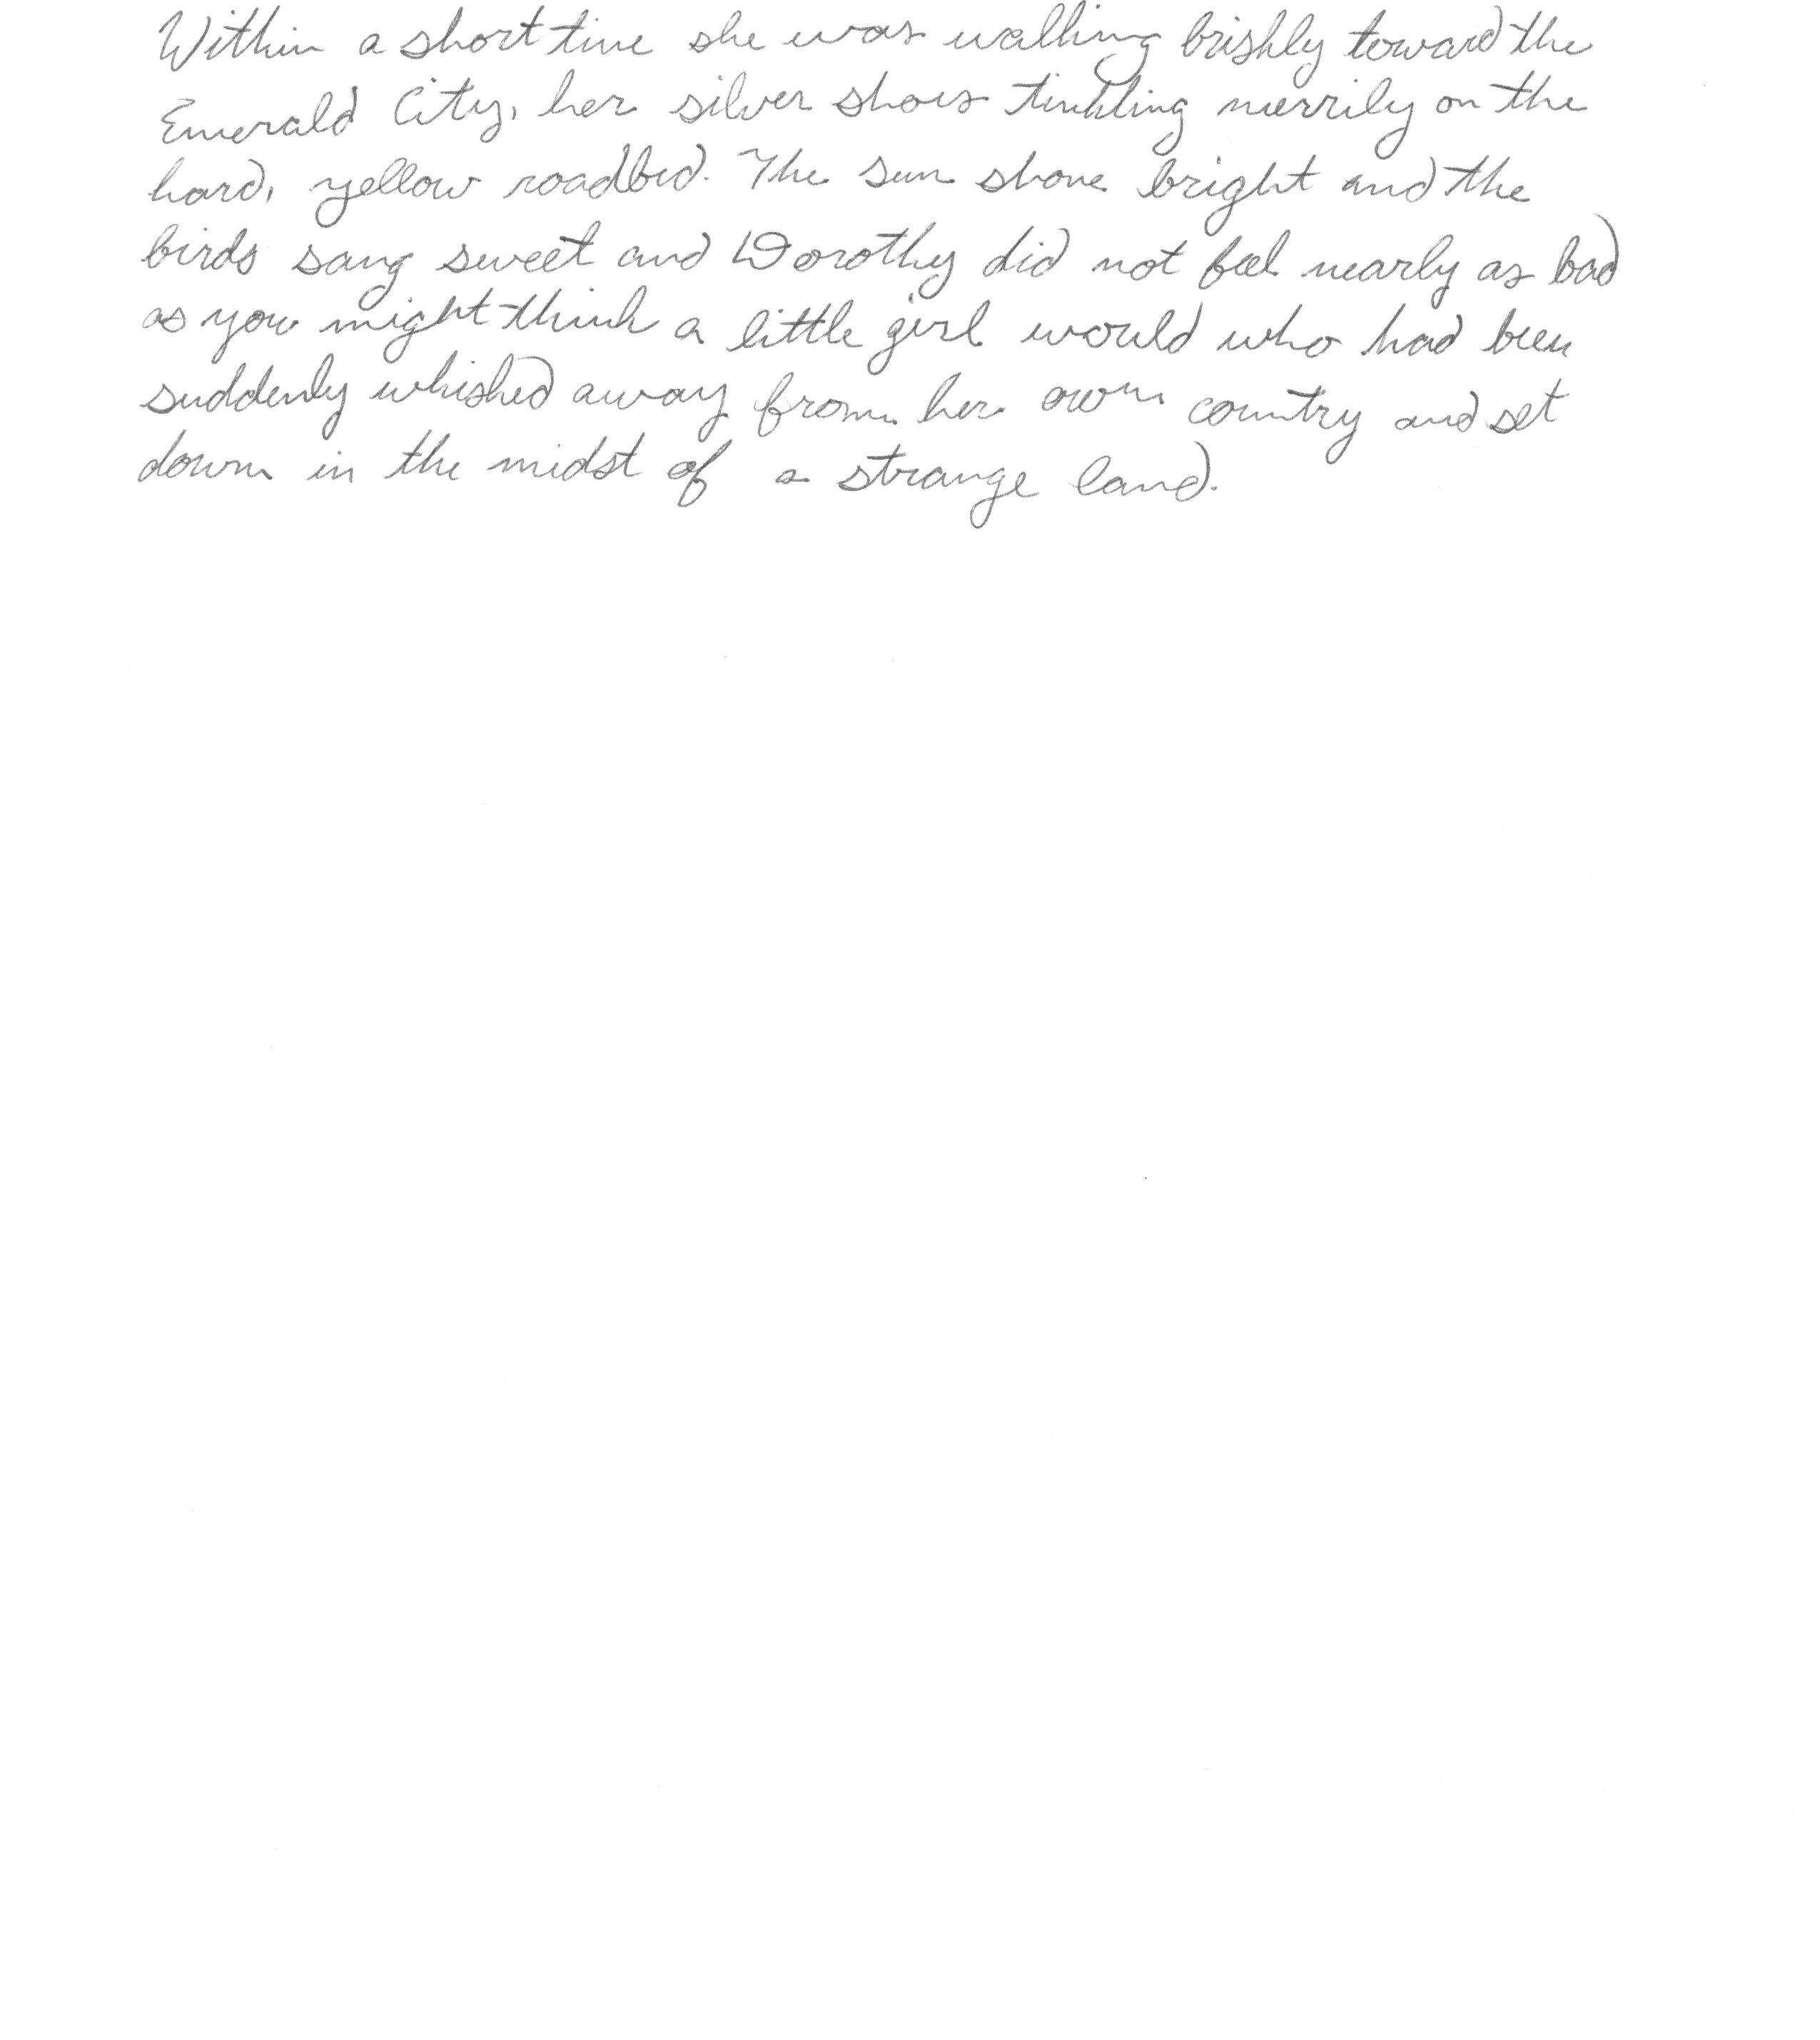 Within a short time she was walking briskly toward the
Emerald City, her silver shoes tinkling merrily on the
hard, yellow roadbed. The sun shone bright and the
birds sang sweet and Dorothy did not feel nearly as bad
as you might think a little girl would who had been
suddenly whisked away from her own country and set
down in the midst of a strange land.